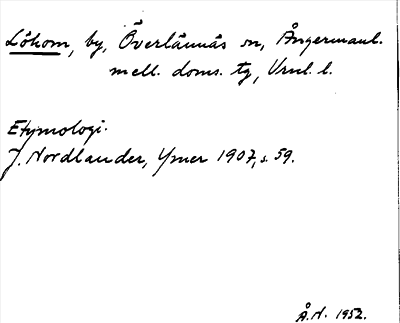 Lökom, by, Överlännäs sn, Ångermanl.
mell. doms. tg, Vrnl. l.
Etymologi.
J. Nordlander, Ymer 1907, s. 59.
Å. N. 1952.